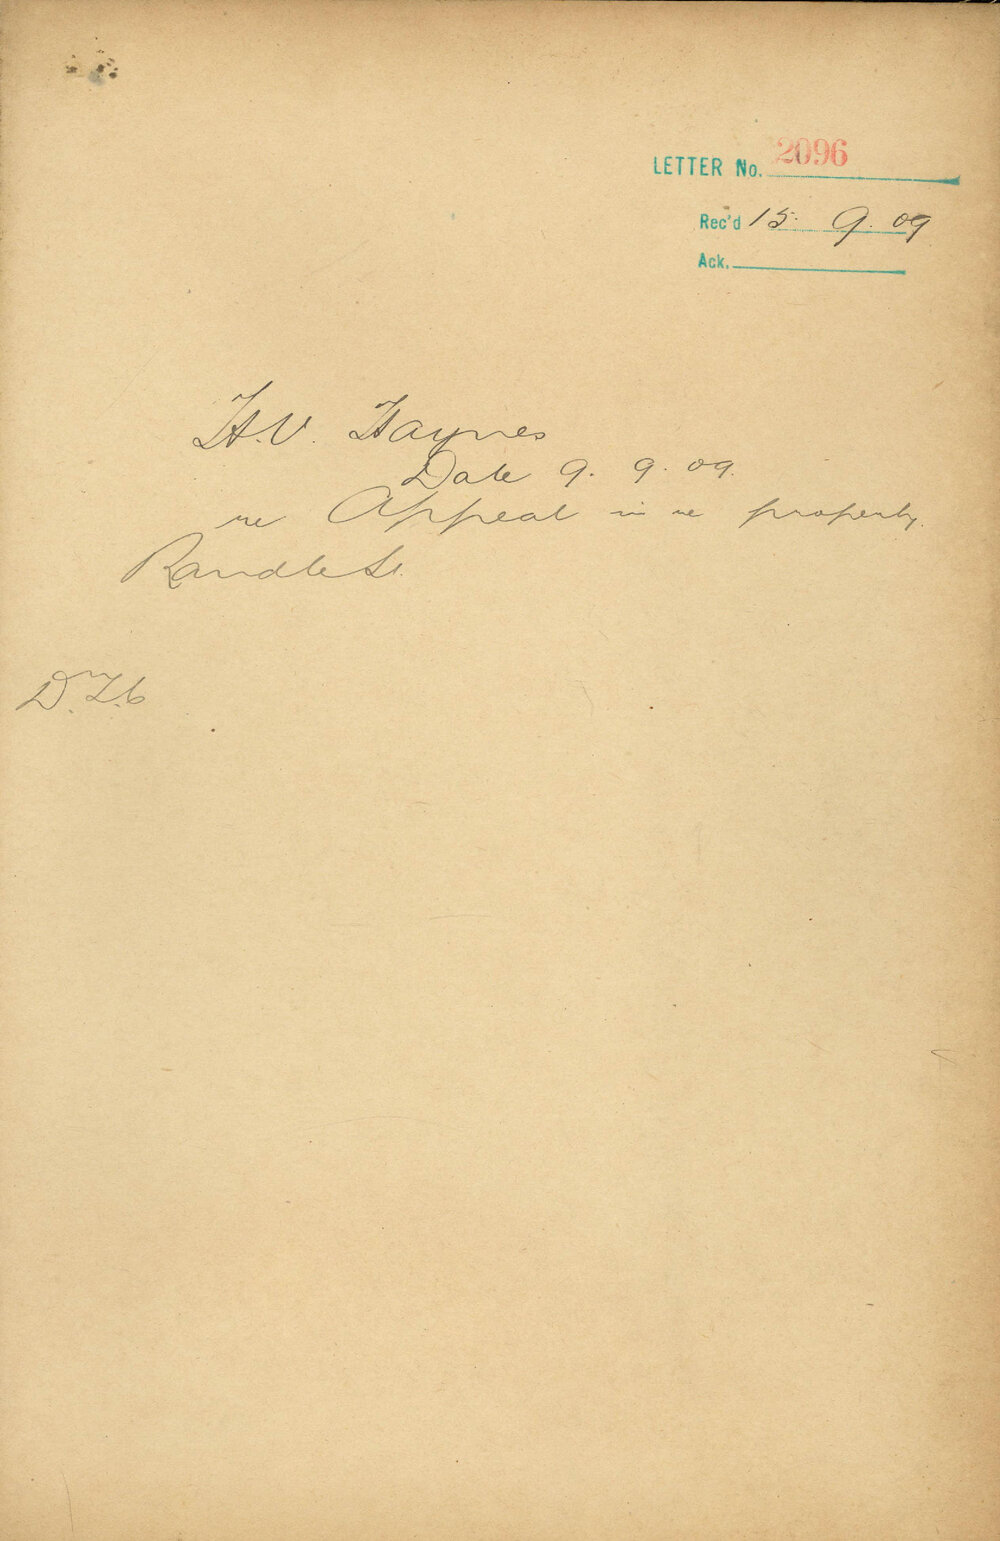 LETTER No. 2096
Rec'd 15. 9. 09
Ack.
H.V. Haynes
Date 9. 9. 09.
re Appeal in re property
Randle St.